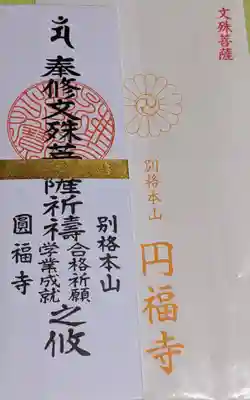 文殊菩薩
別格本山
円福寺
別格本山
奉修文殊菩薩祈禱
合格祈願
学業成就
之攸
圓福寺